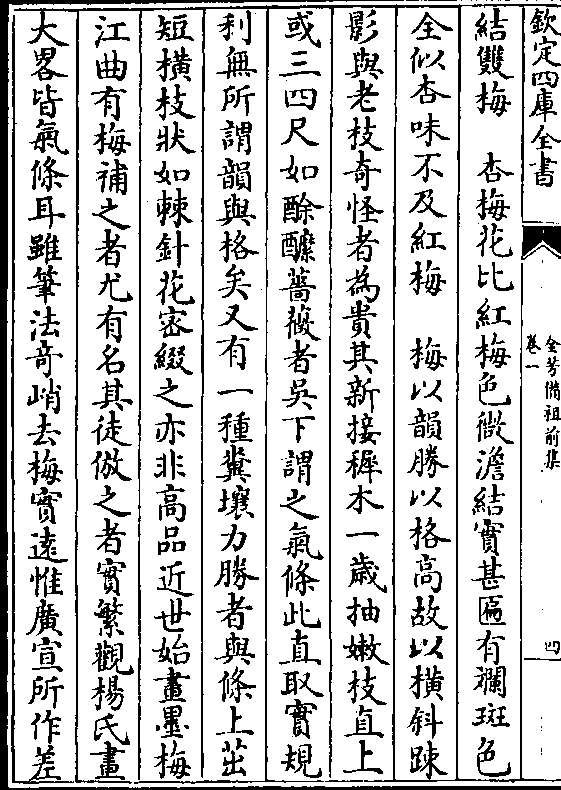 欽定四庫全書
全芳備祖前集
卷一
四
結雙梅　杏梅花比紅梅色微澹結實甚匾有斕斑色
全似杏味不及紅梅　梅以韻勝以格高故以橫斜踈
影與老枝竒怪者為貴其新接穉木一歲抽嫩枝直上
或三四尺如酴醿薔薇者吳下謂之氣條此直取實規
利無所謂韻與格矣又有一種糞壤力勝者與條上茁
短橫枝狀如棘針花宻綴之亦非高品近世始畫墨梅
江曲有梅補之者尤有名其徒倣之者實繁觀楊氏畫
大畧皆氣條耳雖筆法竒峭去梅實遠惟廣宣所作差